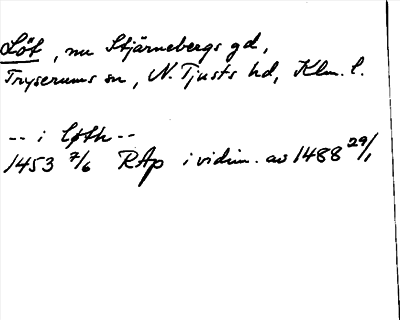 Löt, nu Stjärnebergs gd,
Tryserums sn, N. Tjusts hd, Klm. l.
-- i Løth --
1453 7/6 RAp i vidim. av 1488 29/1